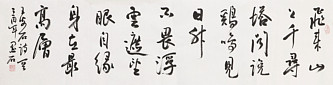 飛来山
上千尋
塔闻说
鷄鳴見
日升
不畏浮
雲遮望
眼自緣
身在最
高層
王安石詩